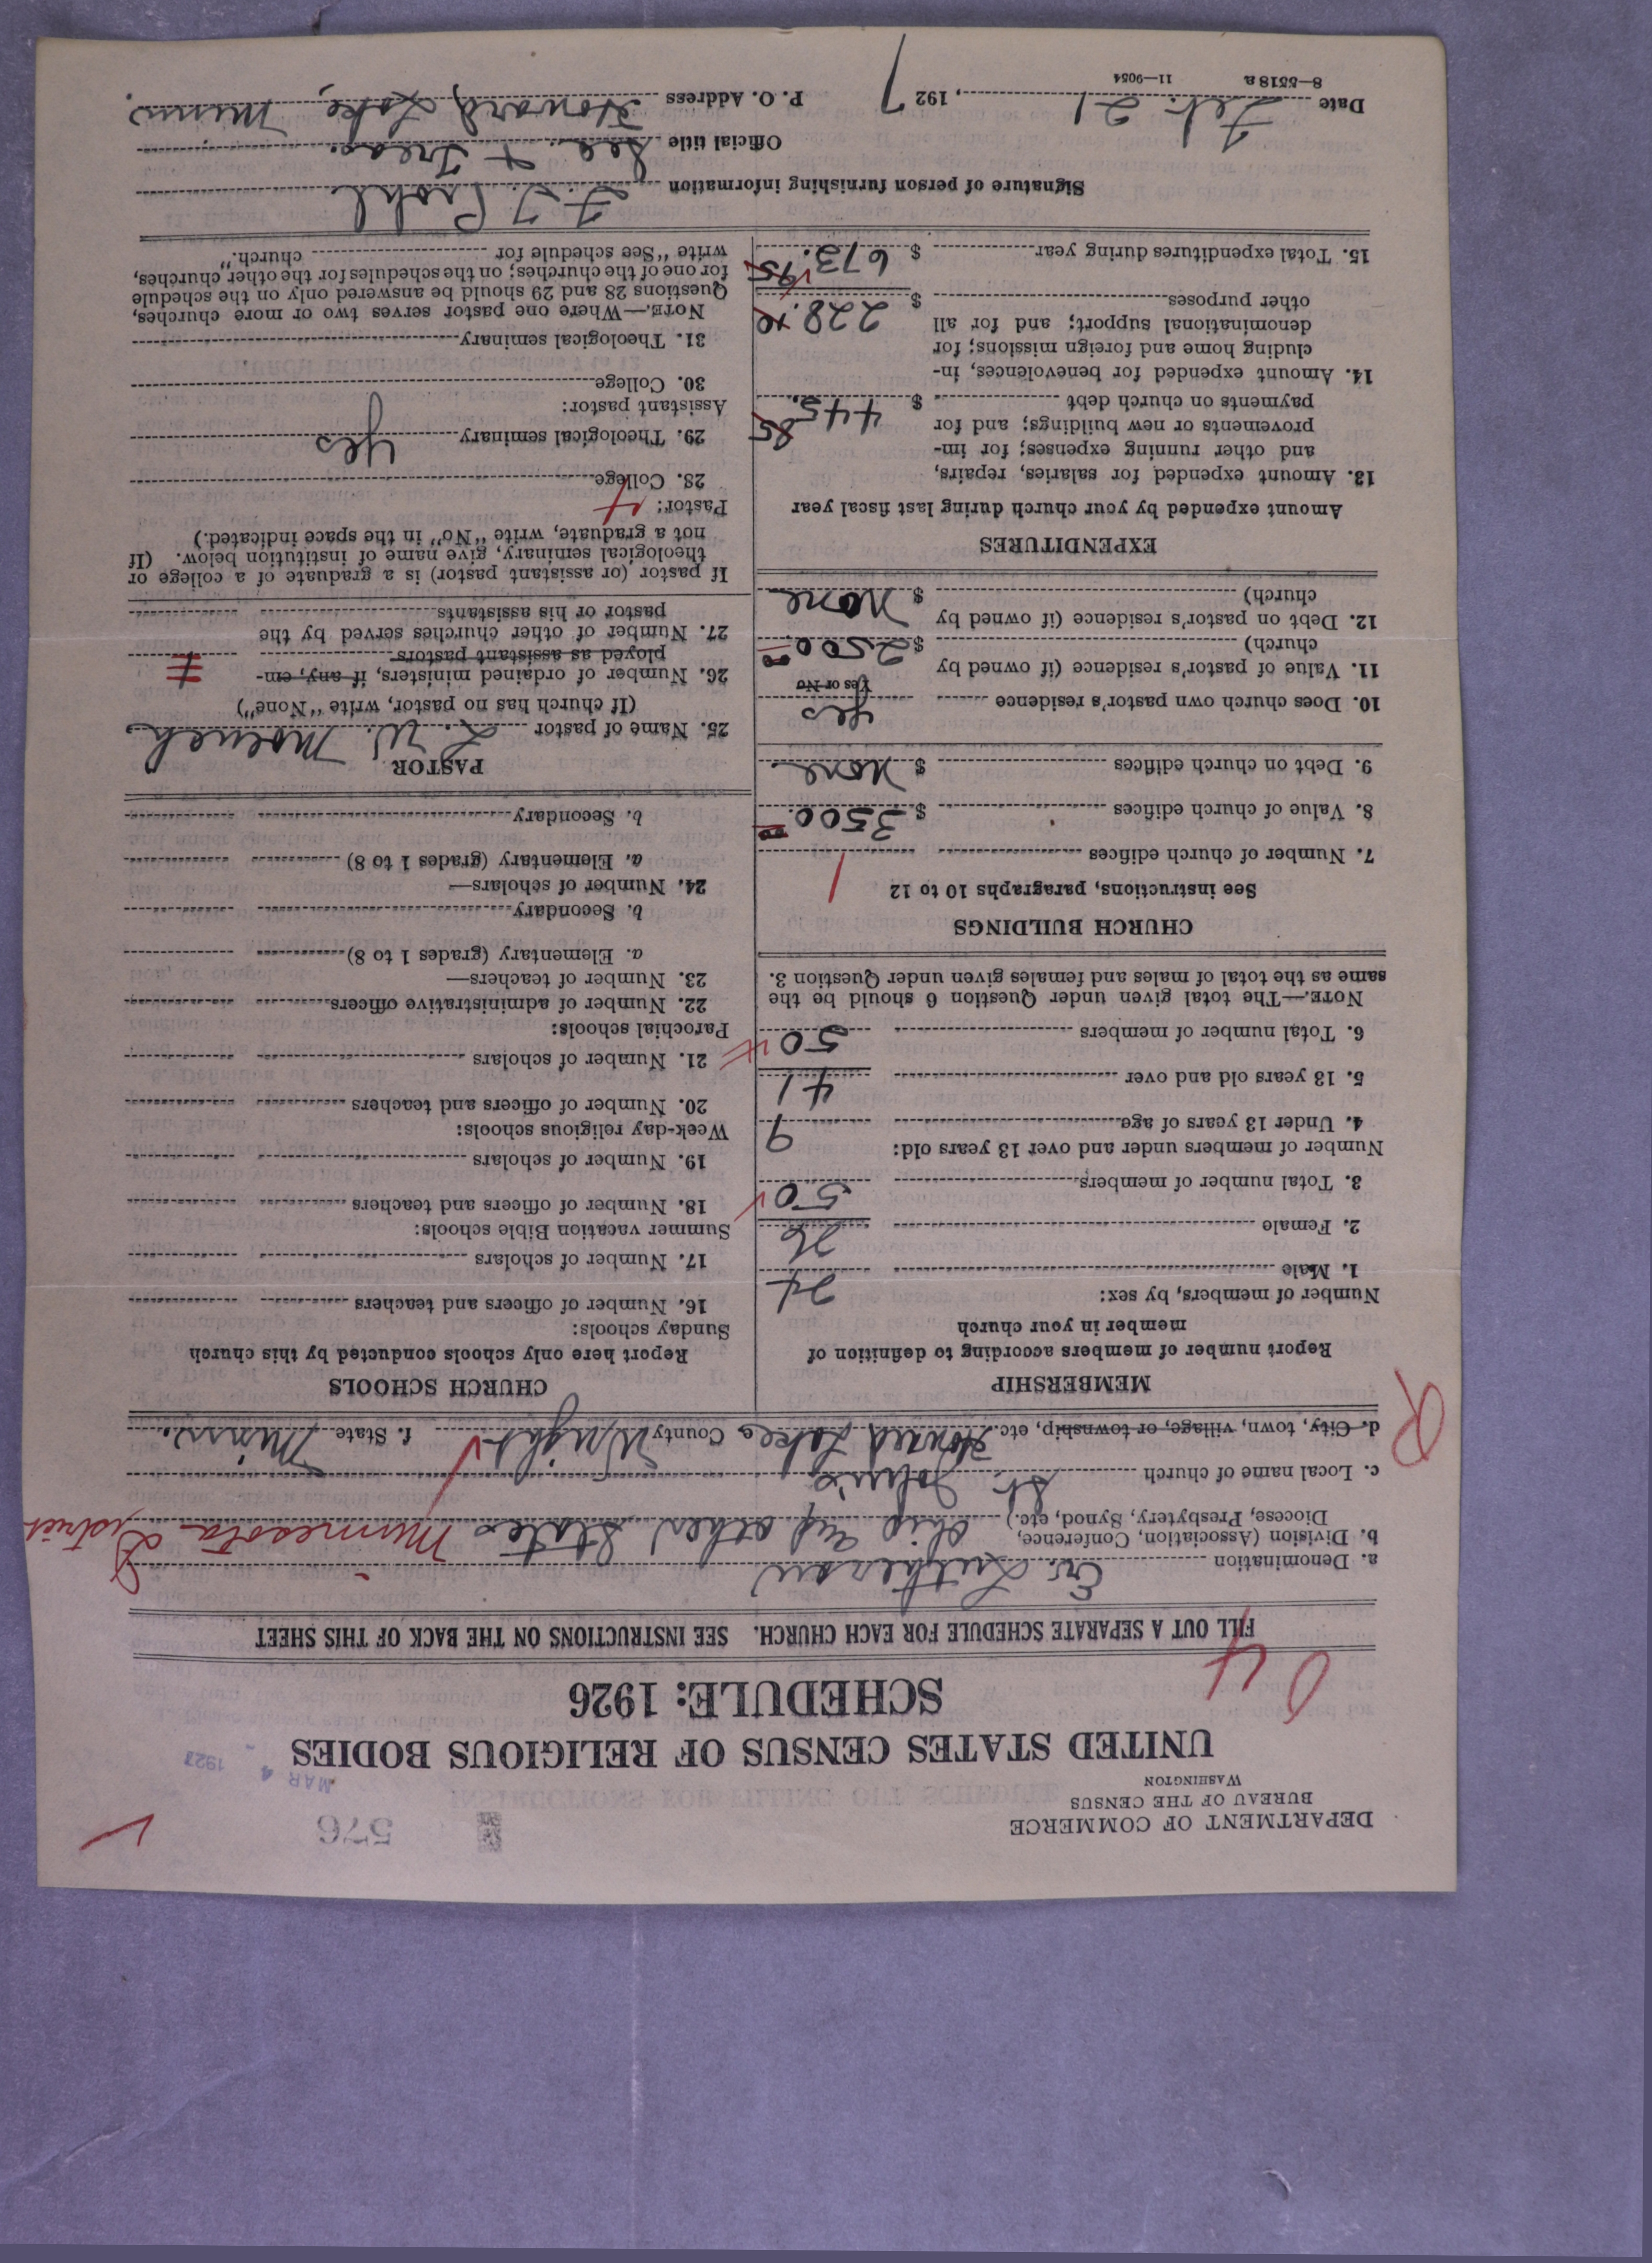 DEPARTMENT OF COMMERCE
BUREAU OF THE CENSUS
WASHINGTON
576
MAR 4 - 1927
UNITED STATES CENSUS OF RELIGIOUS BODIES
SCHEDULE: 1926
04
FILL OUT A SEPARATE SCHEDULE FOR EACH CHURCH. SEE INSTRUCTIONS ON THE BACK OF THIS SHEET
a. Denomination Ev. Lutheran
b. Division (Association, Conference, Diocese, Presbytery, Synod, etc.) Ohio and other States Minnesota District
c. Local name of church St. John's
d. City, town, village, or township, etc. Howard Lake e. County Wright f. State Minn.
R
MEMBERSHIP
Report number of members according to definition of
member in your church
Number of members, by sex:
1. Male 24
2. Female 26
3. Total number of members 50
Number of members under and over 13 years old:
4. Under 13 years of age 9
5. 13 years old and over 41
6. Total number of members 50
NOTE.—The total given under Question 6 should be the
same as the total of males and females given under Question 3.
CHURCH BUILDINGS
See instructions, paragraphs 10 to 12
7. Number of church edifices 1
8. Value of church edifices $ 3500.00
9. Debt on church edifices $ None
10. Does church own pastor's residence Yes
Yes or No
11. Value of pastor's residence (if owned by
church) $ 2500.00
12. Debt on pastor's residence (if owned by
church) $ None
EXPENDITURES
Amount expended by your church during last fiscal year
13. Amount expended for salaries, repairs,
and other running expenses; for im-
provements or new buildings; and for
payments on church debt $ 445.85
14. Amount expended for benevolences, in-
cluding home and foreign missions; for
denominational support; and for all
other purposes $ 228.10
15. Total expenditures during year $ 673.95
CHURCH SCHOOLS
Report here only schools conducted by this church
Sunday schools:
16. Number of officers and teachers
17. Number of scholars
Summer vacation Bible schools:
18. Number of officers and teachers
19. Number of scholars
Week-day religious schools:
20. Number of officers and teachers
21. Number of scholars
Parochial schools:
22. Number of administrative officers
23. Number of teachers—
a. Elementary (grades 1 to 8)
b. Secondary
24. Number of scholars—
a. Elementary (grades 1 to 8)
b. Secondary
PASTOR
25. Name of pastor L. W. Moench
(If church has no pastor, write "None")
26. Number of ordained ministers, if any, em-
ployed as assistant pastors
27. Number of other churches served by the
pastor or his assistants
If pastor (or assistant pastor) is a graduate of a college or
theological seminary, give name of institution below. (If
not a graduate, write "No" in the space indicated.)
Pastor:
28. College
29. Theological seminary Yes
Assistant pastor:
30. College
31. Theological seminary
NOTE.—Where one pastor serves two or more churches,
Questions 28 and 29 should be answered only on the schedule
for one of the churches; on the schedules for the other churches,
write "See schedule for church."
Signature of person furnishing information
Official title Sec & Treas.
Date Feb. 21, 1927 P. O. Address Howard Lake, Minn.
8—5518a 11—9054